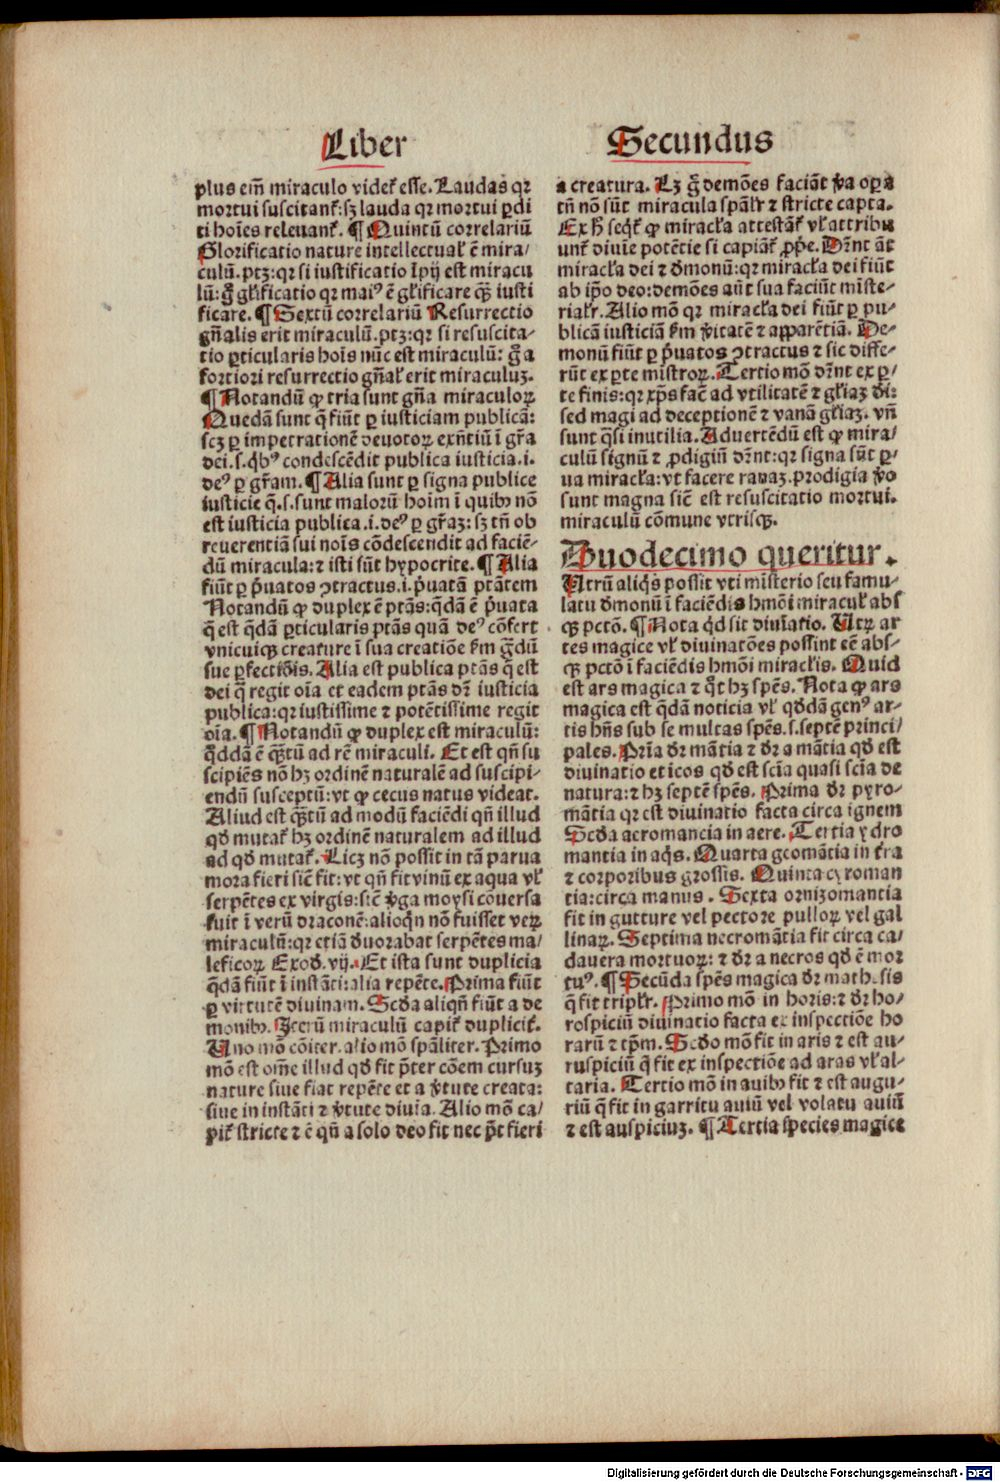 Liber
plus em̃ miraculo videt̃ esse. Laudas qꝛ
mortui suscitant̃: sꝫ lauda qꝛ mortui ꝑdi
ti hoı̃es releuant̃. ¶ Quintũ correlariũ
Glorificatio nature intellectual̃ ẽ mira/
culũ. ptꝫ: qꝛ si iustificatio ı̃pij est miracu
lũ: g̃ gl̃ificatio qꝛ maiꝰ ẽ gl̃ificare qꝫ̃ iusti
ficare. ¶ Sextũ correlariũ Resurrectio
gñalis erit miraculũ. ptꝫ: qꝛ si resuscita-
tio ꝑticularis hoı̃s nũc est miraculũ: g̃ a
fortiori resurrectio gñal̃ erit miraculuꝫ.
¶ Notandũ ꝙ tria sunt gña miraculoꝝ
Quedã sunt q̃ fiũt ꝑ iusticiam publicã:
scꝫ ꝑ impetrationẽ deuotoꝝ exñtiũ ı̃ gr̃a
dei. s. qb̾ꝰ condescẽdit publica iusticia. i.
deꝰ ꝑ gr̃am. ¶ Alia sunt ꝑ signa publice
iusticie q̃. s. sunt malorũ hoim ı̃ quibꝰ nõ
est iusticia publica. i. deꝰ ꝑ gr̃aꝫ: sꝫ tñ ob
reuerentiã sui noı̃s cõdescendit ad faciẽ-
dũ miracula: ⁊ isti sũt hypocrite. ¶ Alia
fiũt ꝑ p̃uatos ꝯtractus. i. p̃uatã ptãtem
Notandũ ꝙ duplex ẽ ptãs: qdã ẽ p̃uata
q̃ est qdã ꝑticularis ptãs quã deꝰ cõfert
vnicuiqꝫ creature ı̃ sua creatiõe ẜm g̃dũ
sue ꝑfectiõis. Alia est publica ptãs q̃ est
dei q̃ regit oı̃a et eadem ptãs dr̃ iusticia
publica: qꝛ iustissime ⁊ potẽtissime regit
oı̃a. ¶ Notandũ ꝙ duplex est miraculũ:
qddã ẽ qꝫ̃tũ ad rẽ miraculi. Et est qñ su
scipiẽs nõ hꝫ ordinẽ naturalẽ ad suscipi-
endũ susceptũ: vt ꝙ cecus natus videat.
Aliud est qꝫ̃tũ ad modũ faciẽdi qñ illud
qđ mutat̃ hꝫ ordinẽ naturalem ad illud
ad qđ mutat̃. Licꝫ nõ possit in tã parua
mora fieri sic̃ fit: vt qñ fit vinũ ex aqua vl̃
serpẽtes ex virgis: sic̃ v̾ga moysi cõuersa
fuit ı̃ verũ draconẽ: alioqñ nõ fuisset veꝝ
miraculũ: qꝛ etiã deuorabat serpẽtes ma/
leficoꝝ Exođ. vij. Et ista sunt duplicia
qdã fiũt ı̃ instãti: alia repẽte. Prima fiũt
ꝑ virtutẽ diuinam. Scđa aliqñ fiũt a de
monibꝰ. Iterũ miraculũ capit̃ duplicit̃.
Uno mõ cõiter. alio mõ spãliter. Primo
mõ est om̃e illud qđ fit p̃ter cõem cursuꝫ
nature siue fiat repẽte et a v̾tute creata:
siue in instãti ⁊ v̾tute diuı̃a. Alio mõ ca/
pit̃ stricte ⁊ ẽ qñ a solo deo fit nec p̃t fieri
Secundus
a creatura. Lꝫ g̃ demões faciãt v̾a oꝑa
tñ nõ sũt miracula spãlr̃ ⁊ stricte capta.
Ex h̾ seqt̃ ꝙ miracl̃a attestãt̃ vl̃ attribu
unt̃ diuı̃e potẽtie si capiãt̃ ꝓpe. Dr̃nt ãt
miracl̃a dei ⁊ đmonũ: qꝛ miracl̃a dei fiũt
ab ip̃o deo: demões aũt sua faciũt mı̃ste-
rialr̃. Alio mõ qꝛ miracl̃a dei fiũt ꝑ pu-
blicã iusticiã ẜm v̾itatẽ ⁊ apparẽtiã. De-
monũ fiũt ꝑ p̃uatos ꝯtractus ⁊ sic diffe-
rũt ex ꝑte mı̃stroꝝ. Tertio mõ dr̃nt ex ꝑ/
te finis: qꝛ xp̃s fac̃ ad vtilitatẽ ⁊ gl̃iaꝫ di:
sed magi ad deceptionẽ ⁊ vanã gl̃iaꝫ. vñ
sunt q̃si inutilia. Aduertẽdũ est ꝙ mira/
culũ signũ ⁊ ꝓdigiũ dr̃nt: qꝛ signa sũt ꝑ-
ua miracl̃a: vt facere ranaꝫ. prodigia v̾o
sunt magna sic̃ est resuscitatio mortui.
miraculũ cõmune vtrisqꝫ.
Duodecimo queritur.
Utrũ aliq̃s possit vti mı̃sterio seu famu-
latu đmonũ ı̃ faciẽdis hmõi miracul̃ absl
qꝫ pctõ. ¶ Nota q̃d sit diuı̃atio. Utꝝ ar
tes magice vl̃ diuinatões possint eẽ abs-
qꝫ pctõ ı̃ faciẽdis hmõi miracl̃is. Quid
est ars magica ⁊ q̃t hꝫ spẽs. Nota ꝙ ars
magica est qdã noticia vl̃ qđdã genꝰ ar-
tis hñs sub se multas spẽs. s. septẽ princi/
pales. Prı̃a dr̃ mãtia ⁊ dr̃ a mãtia qđ est
diuinatio et icos qđ est scı̃a quasi scı̃a de
natura: ⁊ hꝫ septẽ spẽs. Prima dr̃ pyro-
mãtia qꝛ est diuinatio facta circa ignem
Scđa aeromancia in aere. Tertia ydro
mantia in aq̃s. Quarta geomãtia in t̾ra
⁊ corporibus grossis. Quinta cyroman
tia: circa manus. Sexta ornizomantia
fit in gutture vel pectore pulloꝝ vel gal
linaꝝ. Septima necromãtia fit circa ca/
dauera mortuoꝝ: ⁊ dr̃ a necros qđ ẽ mor
tuꝰ. ¶ Secũda spẽs magica dr̃ mathesis
q̃ fit triplr̃. Primo mõ in horis: ⁊ dr̃ ho/
rospiciũ diuinatio facta ex inspectiõe ho
rarũ ⁊ tp̃m. Scđo mõ fit in aris ⁊ est au-
ruspiciũ q̃ fit ex inspectiõe ad aras vl̃ al-
taria. Tertio mõ in auibꝰ fit ⁊ est augu-
riũ q̃ fit in garritu auiũ vel volatu auiũ
⁊ est auspiciuꝫ. ¶ Tertia species magice
Digitalisierung gefördert durch die Deutsche Forschungsgemeinschaft - DFG